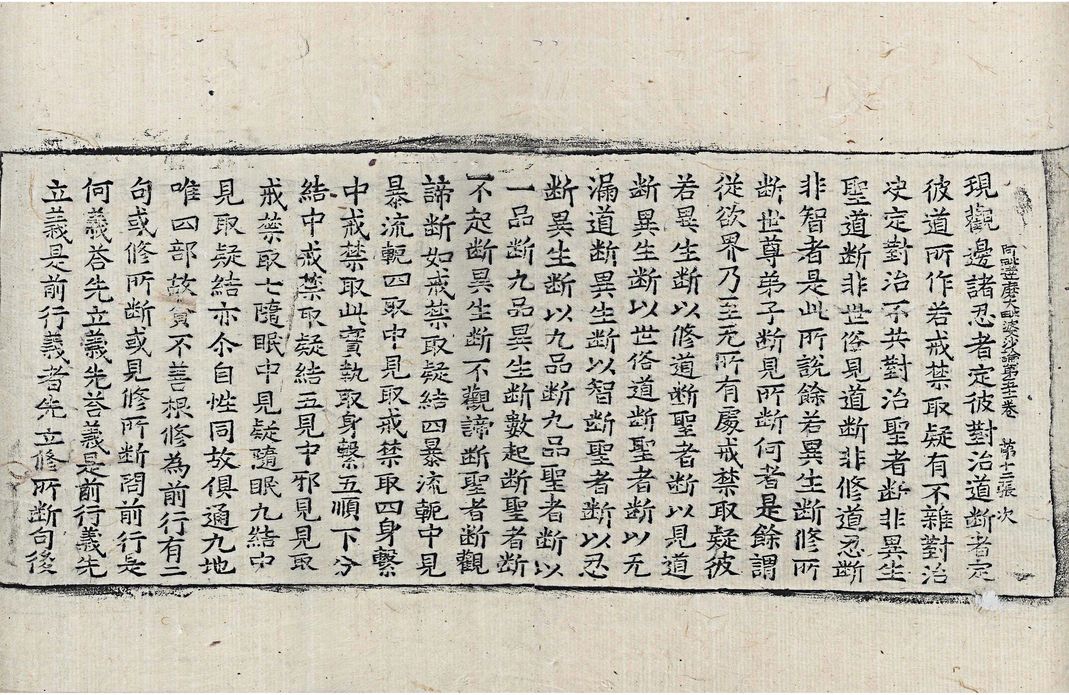 阿毗達磨大毗婆沙論第五十一卷 苐十三張 次
現觀邊諸忍者定彼對治道断者定
彼道所作若戒禁取疑有不雜對治
决定對治不共對治聖者断非異生
聖道断非世俗見道断非修道忍断
非智者是此所說餘若異生断修所
断世尊弟子断見所断何者是餘謂
從欲界乃至无所有處戒禁取疑彼
若異生断以修道断聖者断以見道
断異生断以世俗道断聖者断以无
漏道断異生断以智断聖者断以忍
断異生断以九品断九品聖者断以
一品断九品異生断數起断聖者断
不起断異生断不觀諦断聖者断觀
諦断如戒禁取疑結四暴流軛中見
暴流軛四取中見取戒禁取四身繫
中戒禁取此實執取身繫五順下分
結中戒禁取疑結五見中邪見見取
戒禁取七隨眠中見疑隨眠九結中
見取疑結亦尒自性同故俱通九地
唯四部故貪不善根修為前行有二
句或修所断或見修所断問前行是
何義荅先立義先荅義是前行義先
立義是前行義者先立修所断句後